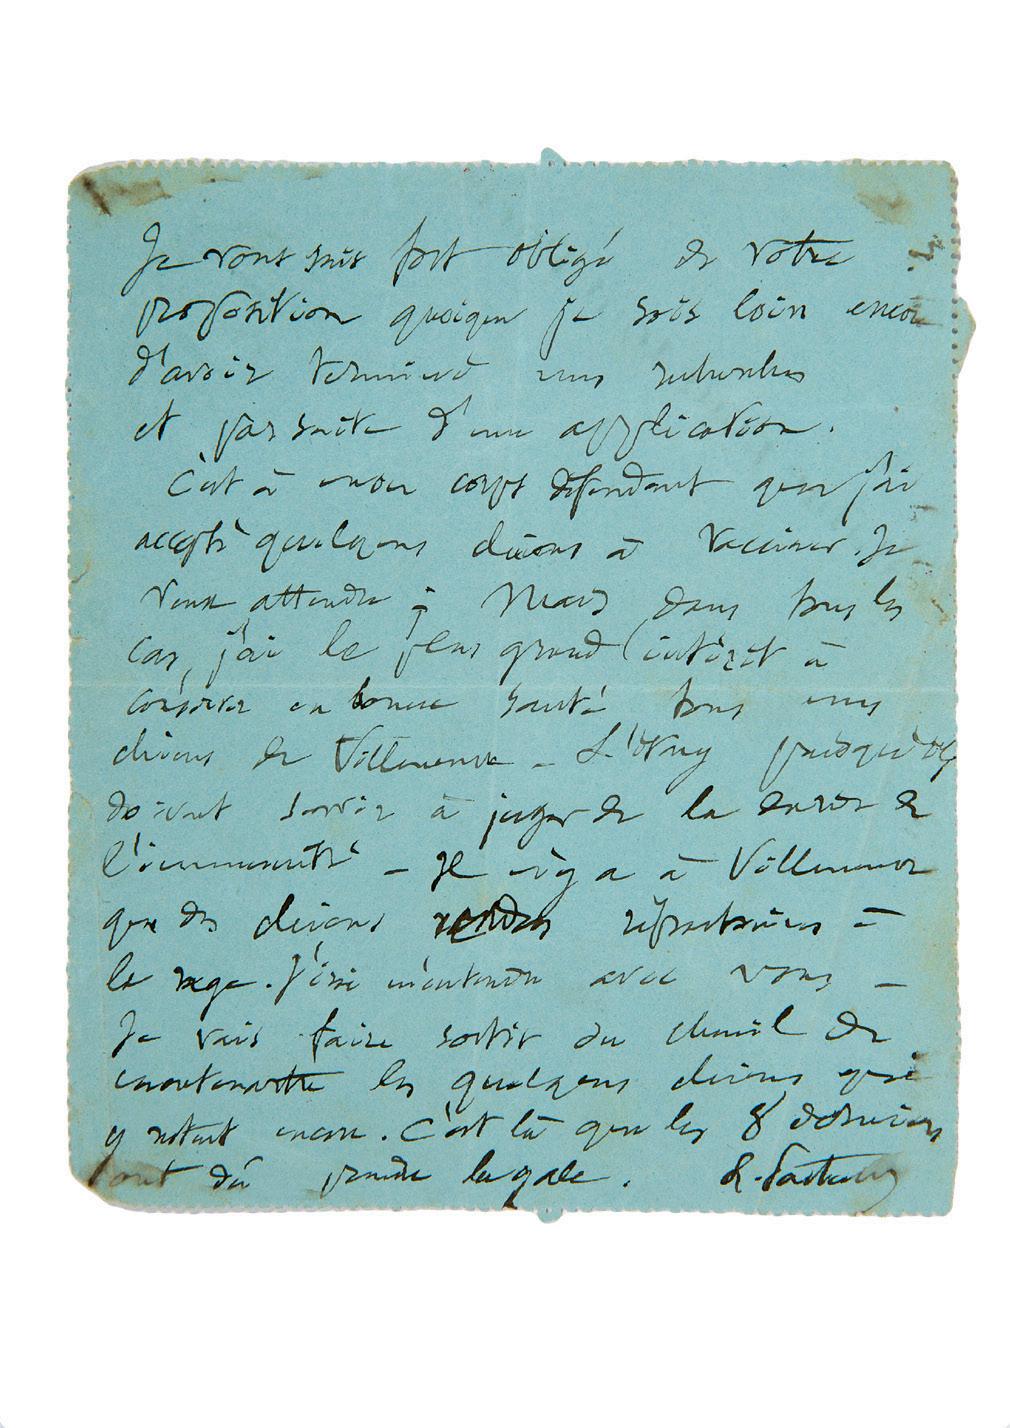 Je vous suis fort obligé de votre
proposition quoique je sois loin encore
d'avoir terminé mes recherches
et par suite d'une application.
C'est à mon corps défendant que j'ai
accepté quelques chiens à vacciner. Je
veux attendre ; Mais, dans tous les
cas, j'ai le plus grand intérêt à
conserver en bonne santé tous mes
chiens de Villeneuve - L'Etang puisqu'ils
doivent servir à juger de la durée de
l'immunité - Il n'y a à Villeneuve
que des chiens rendus réfractaires à
la rage. J'irai m'entendre avec vous -
Je vais faire sortir du chenil de
les quelques chiens qui
y restent encore. C'est là que les 8 derniers
ont dû prendre la gale. L. Pasteur